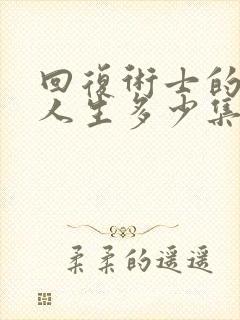 回復術士的
人生多少集
柔柔的遥遥